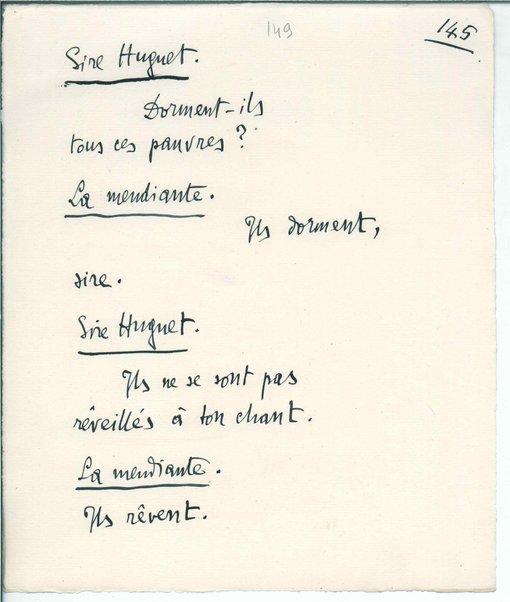 149
145
Sire Huguet.
Dorment-ils
tous ces pauvres ?
La mendiante.
Ils dorment,
sire.
Sire Huguet.
Ils ne se sont pas
réveillés à ton chant.
La mendiante.
Ils rêvent.